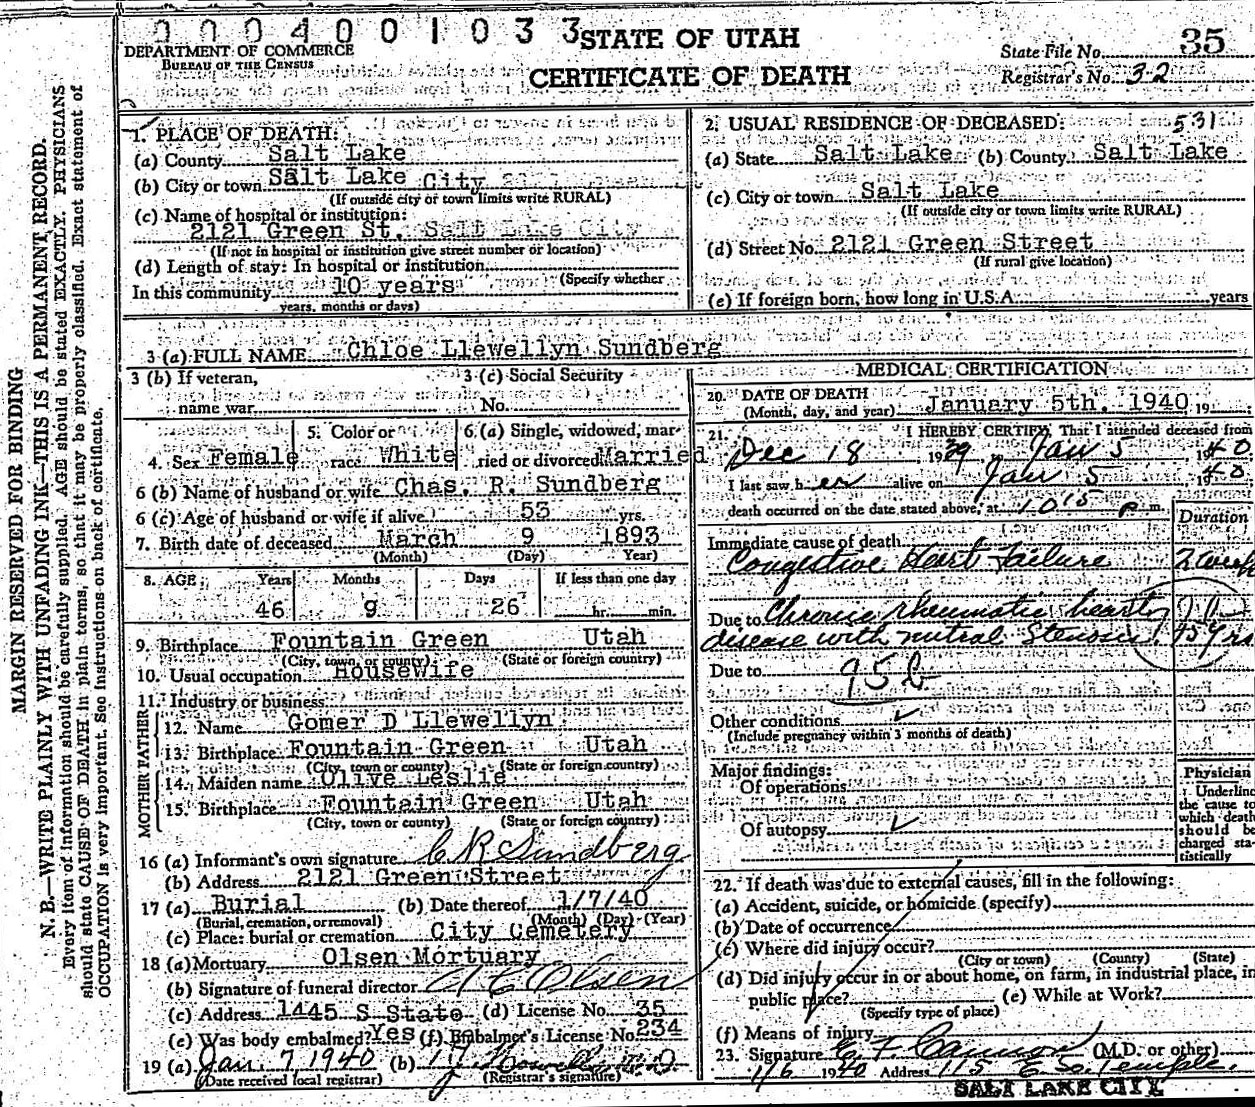 0004001033
DEPARTMENT OF COMMERCE
BUREAU OF THE CENSUS
STATE OF UTAH
CERTIFICATE OF DEATH
State File No. 35
Registrar's No. 32
MARGIN RESERVED FOR BINDING
N. B.—WRITE PLAINLY WITH UNFADING INK—THIS IS A PERMANENT RECORD.
Every item of information should be carefully supplied. AGE should be stated EXACTLY. PHYSICIANS
should state CAUSE OF DEATH in plain terms, so that it may be properly classified. Exact statement of
OCCUPATION is very important. See instructions on back of certificate.
1. PLACE OF DEATH:
(a) County Salt Lake
(b) City or town Salt Lake City
(If outside city or town limits write RURAL)
(c) Name of hospital or institution:
2121 Green St. Salt Lake City
(If not in hospital or institution give street number or location)
(d) Length of stay: In hospital or institution
(Specify whether
In this community 10 years
years, months or days)
2. USUAL RESIDENCE OF DECEASED: 531
(a) State Salt Lake (b) County Salt Lake
(c) City or town Salt Lake
(If outside city or town limits write RURAL)
(d) Street No. 2121 Green Street
(If rural give location)
(e) If foreign born, how long in U.S.A. years
3 (a) FULL NAME Chloe Llewellyn Sundberg
3 (b) If veteran,
name war
3 (c) Social Security
No.
4. Sex Female
5. Color or
race White
6. (a) Single, widowed, mar-
ried or divorced Married
6 (b) Name of husband or wife Chas. R. Sundberg
6 (c) Age of husband or wife if alive 53 yrs.
7. Birth date of deceased March 9 1893
(Month) (Day) Year)
8. AGE: Years Months Days If less than one day
46 9 26 hr. min.
9. Birthplace Fountain Green Utah
(City, town, or county) (State or foreign country)
10. Usual occupation Housewife
11. Industry or business
FATHER
12. Name Gomer D Llewellyn
13. Birthplace Fountain Green Utah
(City, town or county) (State or foreign country)
MOTHER
14. Maiden name Olive Leslie
15. Birthplace Fountain Green Utah
(City, town or county) (State or foreign country)
16 (a) Informant's own signature C R Sundberg
(b) Address 2121 Green Street
17 (a) Burial (b) Date thereof 1/7/40
(Burial, cremation, or removal) (Month) (Day) (Year)
(c) Place: burial or cremation City Cemetery
18 (a) Mortuary Olsen Mortuary
(b) Signature of funeral director A C Olsen
(c) Address 1445 S State (d) License No. 35
(e) Was body embalmed? Yes (f) Embalmer's License No. 234
19 (a) Jan. 7, 1940 (b)
(Date received local registrar) (Registrar's signature)
MEDICAL CERTIFICATION
20. DATE OF DEATH
(Month, day, and year) January 5th, 1940, 19
21. I HEREBY CERTIFY, That I attended deceased from
Dec 18, 1939, Jan 5, 1940.
I last saw her alive on Jan 5, 1940,
death occurred on the date stated above, at 1015 P m.
Duration
Immediate cause of death
Congestive Heart Failure
Due to Chronic rheumatic heart
disease with mitral Stenosis
Due to 95b
Other conditions
(Include pregnancy within 3 months of death)
Major findings:
Of operations
Of autopsy
Physician
Underline
the cause to
which death
should be
charged sta-
tistically
22. If death was due to external causes, fill in the following:
(a) Accident, suicide, or homicide (specify)
(b) Date of occurrence
(c) Where did injury occur?
(City or town) (County) (State)
(d) Did injury occur in or about home, on farm, in industrial place, in
public place? (e) While at Work?
(Specify type of place)
(f) Means of injury
23. Signature C. F. Cannon (M.D. or other)
1/6 1940 Address 115 E. So. Temple,
SALT LAKE CITY